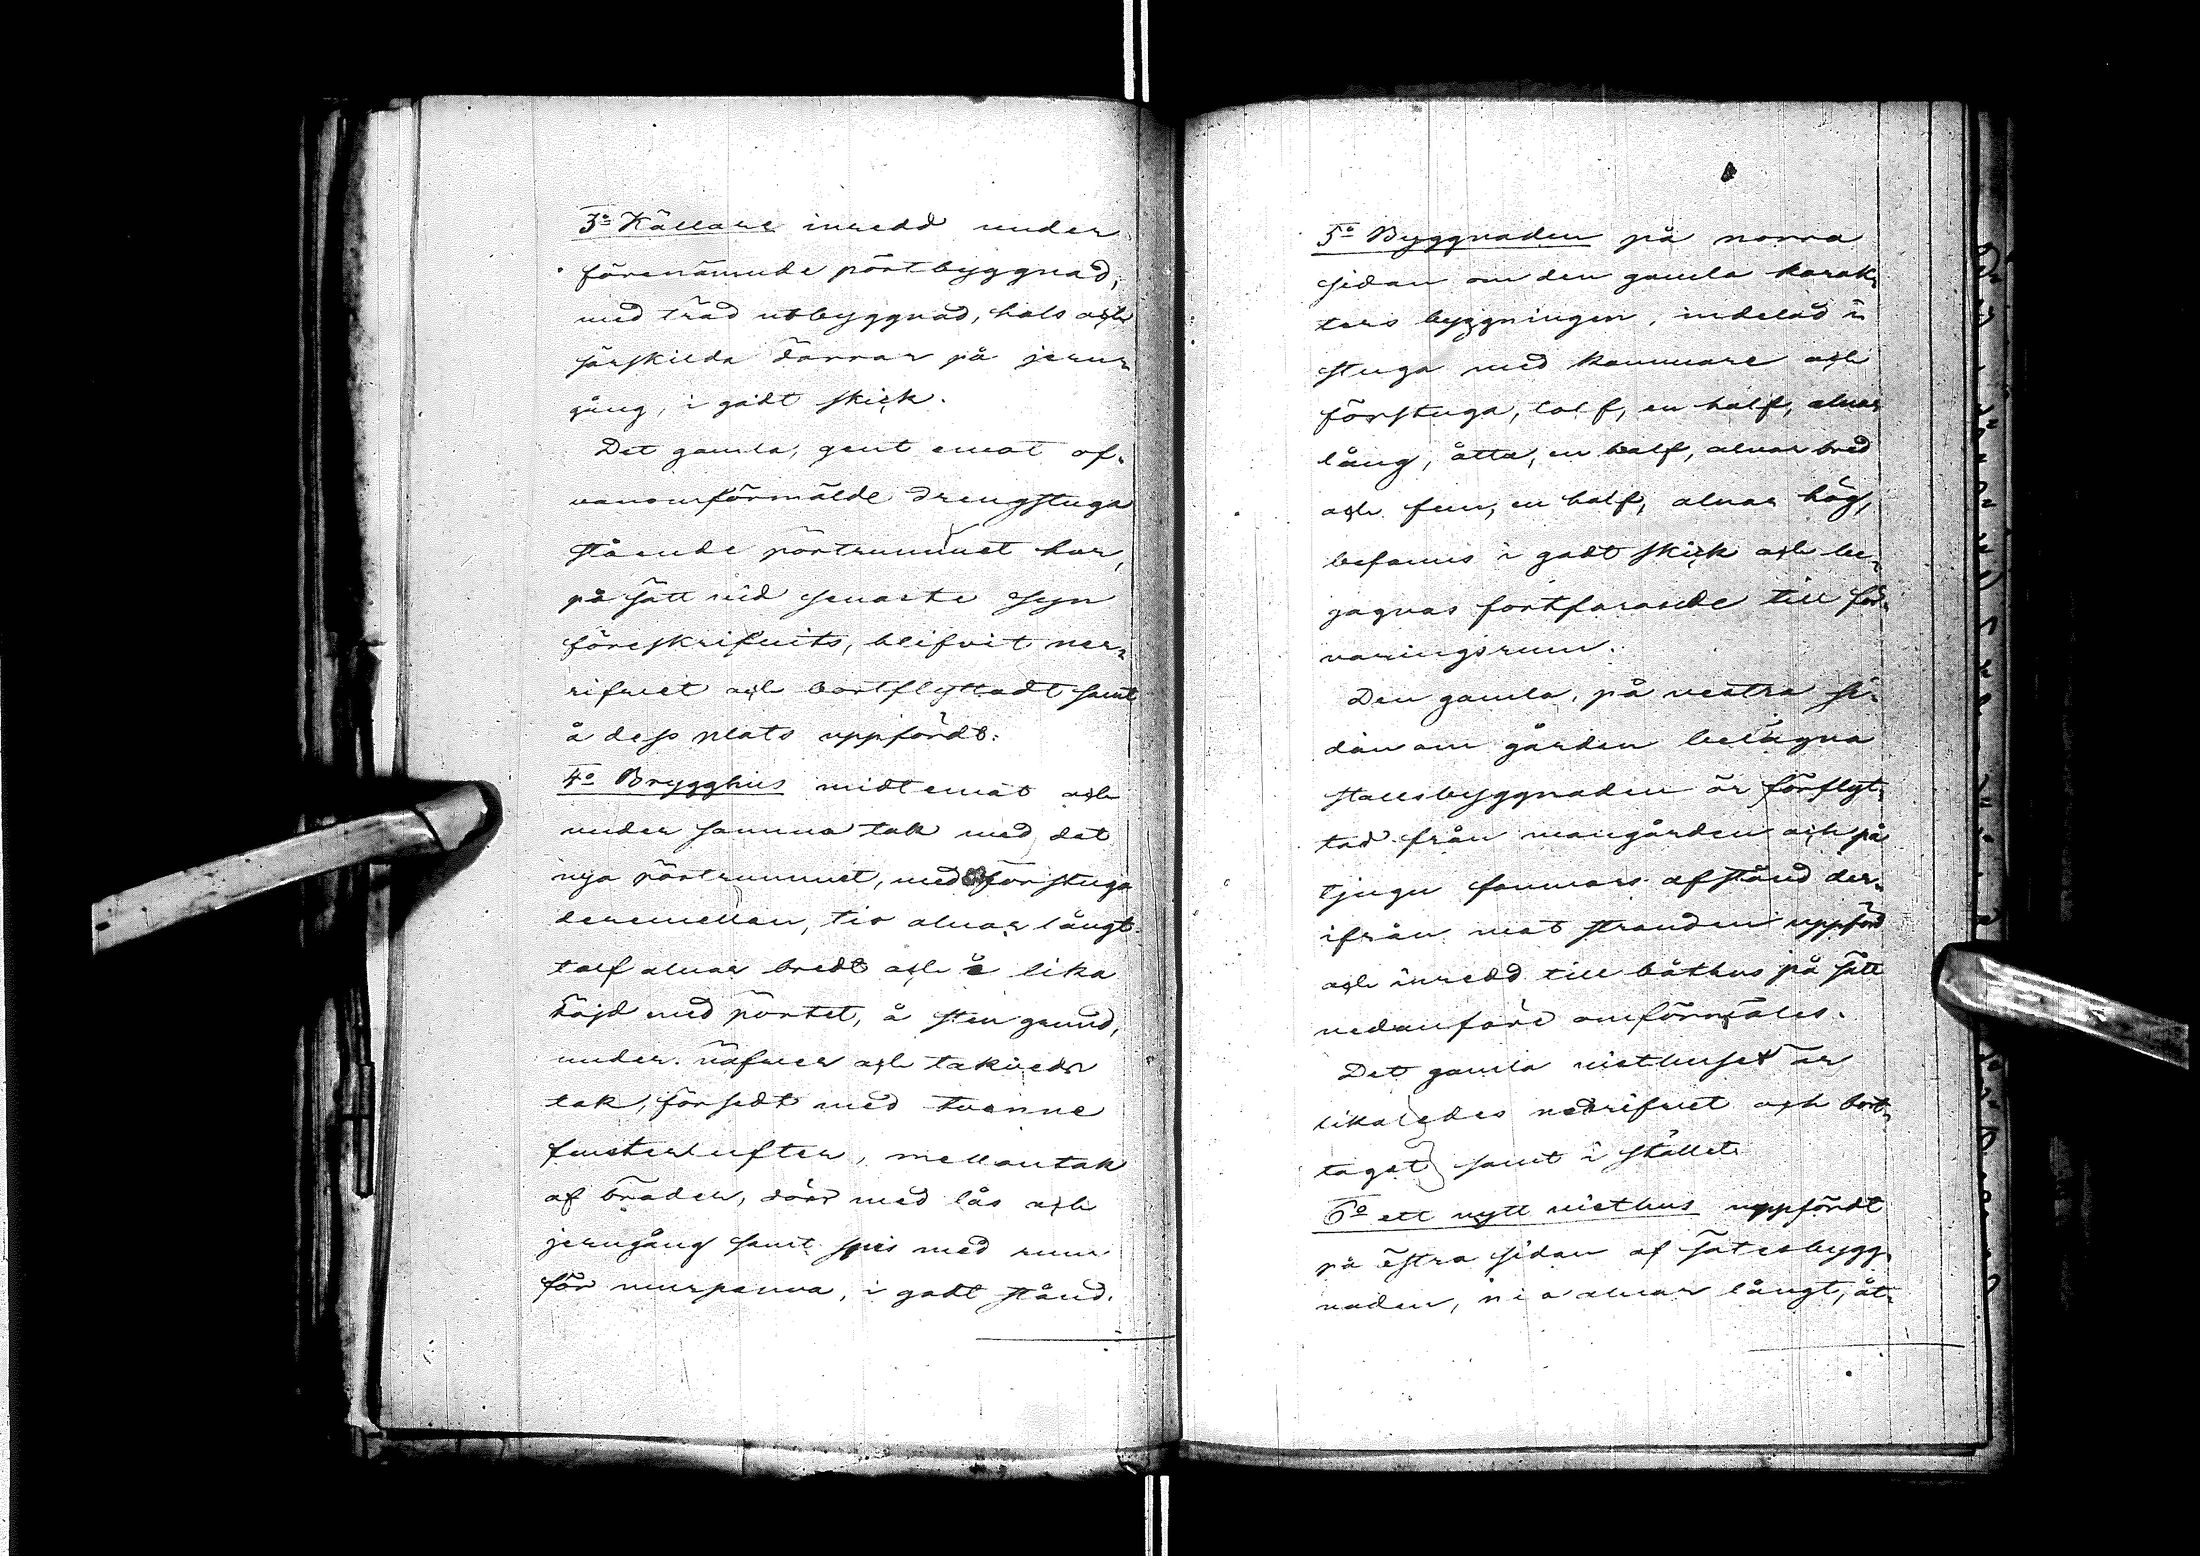 3:o Källare inredd under
förenämnde pörtbyggnad,
med träd utbyggnad, hals och
särskilda dörrar på jern-
gång, i godt skick.
Det gamla, gent emot of-
vanomförmälde drengstuga
stående pörtrummet har,
på sätt vid senaste syn
föreskrifvits, blifvit ner-
rifvet och bortflyttadt samt
å dess plats uppfördt:
4:o Brygghus midt emot och
under samma tak med det
nya pörtrummet, med förstuga
deremellan, tio alnar långt
tolf alnar bredt och å lika
höjd med pörtet, å sten grund,
under näfver och takveds
tak, försedt med tvenne
fensterlufter, mellantak
af bräder, dörr med lås och
jerngång samt spis med rum
för murpanna, i godt stånd.
5:o Byggnaden på norra
sidan om den gamla karak-
ters byggningen, indelad i
stuga med kammare och
förstuga, tolf, en half, alnar
lång, åtta, en half, alnar bred
och fem, en half, alnar hög,
befanns i godt skick och be-
gagnas fortfarande till för-
varingsrum.
Den gamla, på vestra si-
dan om gården belägna
stallsbyggnaden är förflyt-
tad från mangården och på
tjugu famnars afstånd der-
ifrån mot stranden uppförd
och inredd till båthus på sätt
nedanföre omförmäles.
Det gamla visthuset är
likaledes nedrifvet och bort-
taget samt i stället
6:o ett nytt visthus uppfördt
på östra sidan af sätesbygg-
naden, nio alnar långt, åt-